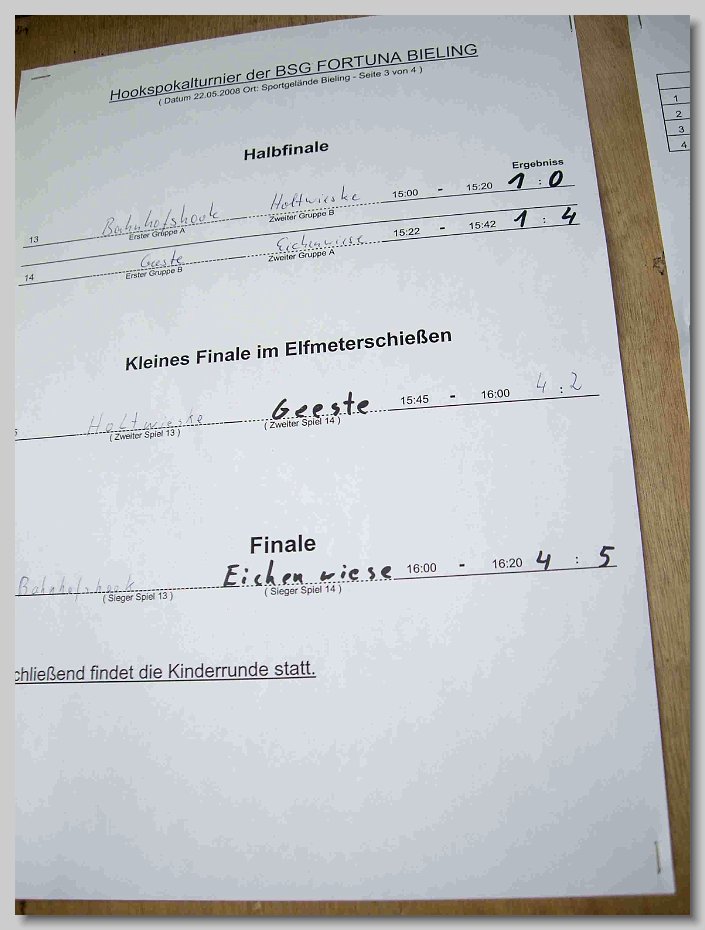 Hookspokalturnier der BSG FORTUNA BIELING
( Datum 22.05.2008 Ort: Sportgelände Bieling - Seite 3 von 4 )
Halbfinale
Ergebniss
13 Bahnhofshook Holtwieske 15:00 - 15:20 1 : 0
Erster Gruppe A Zweiter Gruppe B
14 Geeste Eichenwiese 15:22 - 15:42 1 : 4
Erster Gruppe B Zweiter Gruppe A
Kleines Finale im Elfmeterschießen
5 Holtwieske Geeste 15:45 - 16:00 4 : 2
( Zweiter Spiel 13 ) ( Zweiter Spiel 14 )
Finale
Bahnhofshook Eichenwiese 16:00 - 16:20 4 : 5
( Sieger Spiel 13 ) ( Sieger Spiel 14 )
chließend findet die Kinderrunde statt.
1
2
3
4